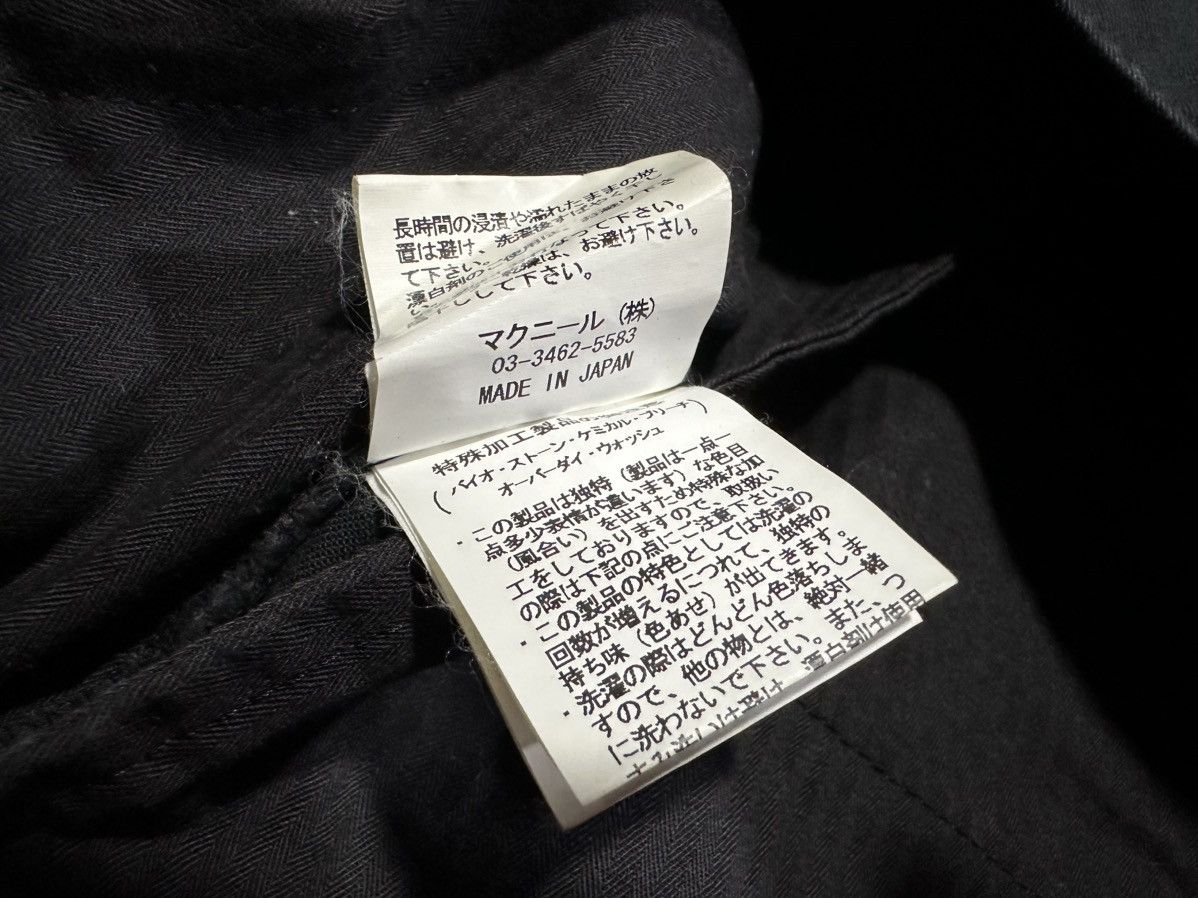 長時間の浸漬や濡れたままの放
置は避け、洗濯後すばやく干し
て下さい。
漂白剤のご使用は、お避け下さ
い。
って下さい。
乾燥は、お避け下さい。
して下さい。
マクニール (株)
03-3462-5583
MADE IN JAPAN
特殊加工製品の
(バイオ・ストーン・ケミカル・ブリーチ)
オーバーダイ・ウォッシュ
・この製品は独特(製品は一点一
点多少表情が違います)な色目
(風合い)を出すため特殊な加
工をしておりますので、取扱い
の際は下記の点にご注意下さい。
・この製品の特色としては洗濯の
回数が増えるにつれて、独特の
持ち味(色あせ)が出てきます。
・洗濯の際はどんどん色落ちしま
すので、他の物とは、絶対一緒
に洗わないで下さい。また、つ
け込み洗いは避け、漂白剤は使用